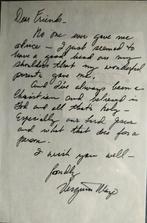 Dear Friends -
No one ever gave me
advice - I just seemed to
have a good head on my
shoulders that my wonderful
parents gave me.
And I've always been a
Christian and believed in
God and all that's holy -
Especially our Lord Jesus
and what that does for a
person.
I wish you well -
fondly
Virginia Mayo